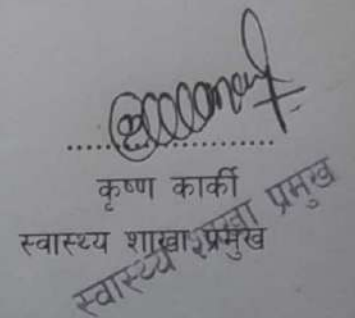 ....................
कृष्ण कार्की
स्वास्थ्य शाखा प्रमुख
स्वास्थ्य शाखा प्रमुख